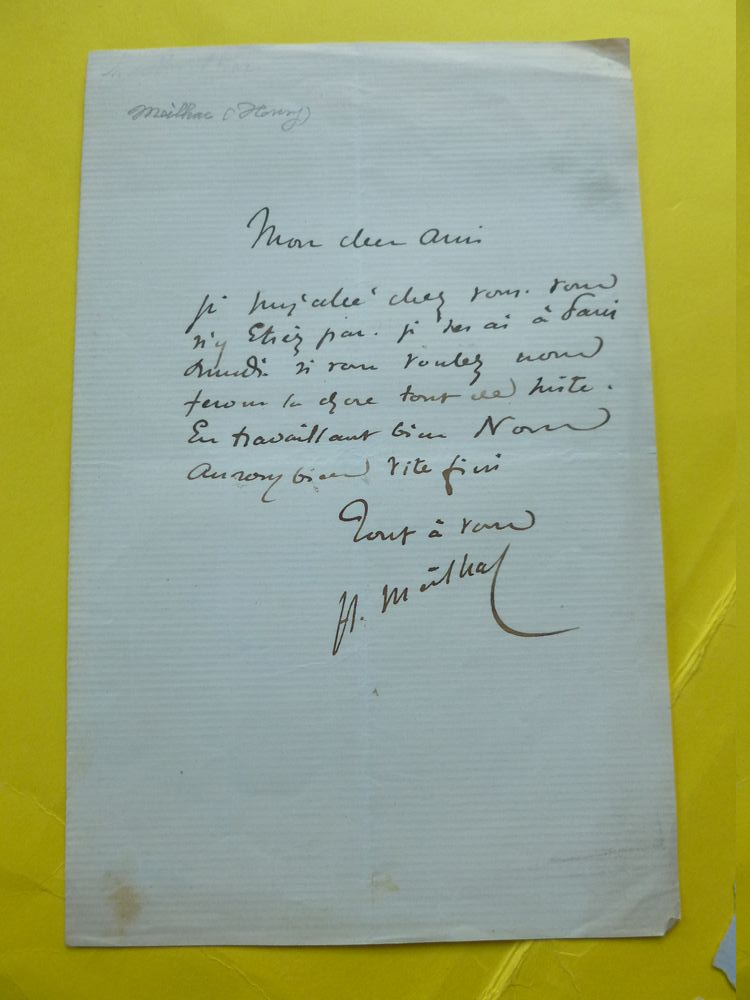 Meilhac (Henry)
Mon cher Ami
je suis allé chez vous. vous
n'y Etiez pas. je serai à Paris
lundi si vous voulez nous
ferons la chose tout de suite.
En travaillant bien Nous
aurons bien vite fini
Tout à vous
H. Meilhac